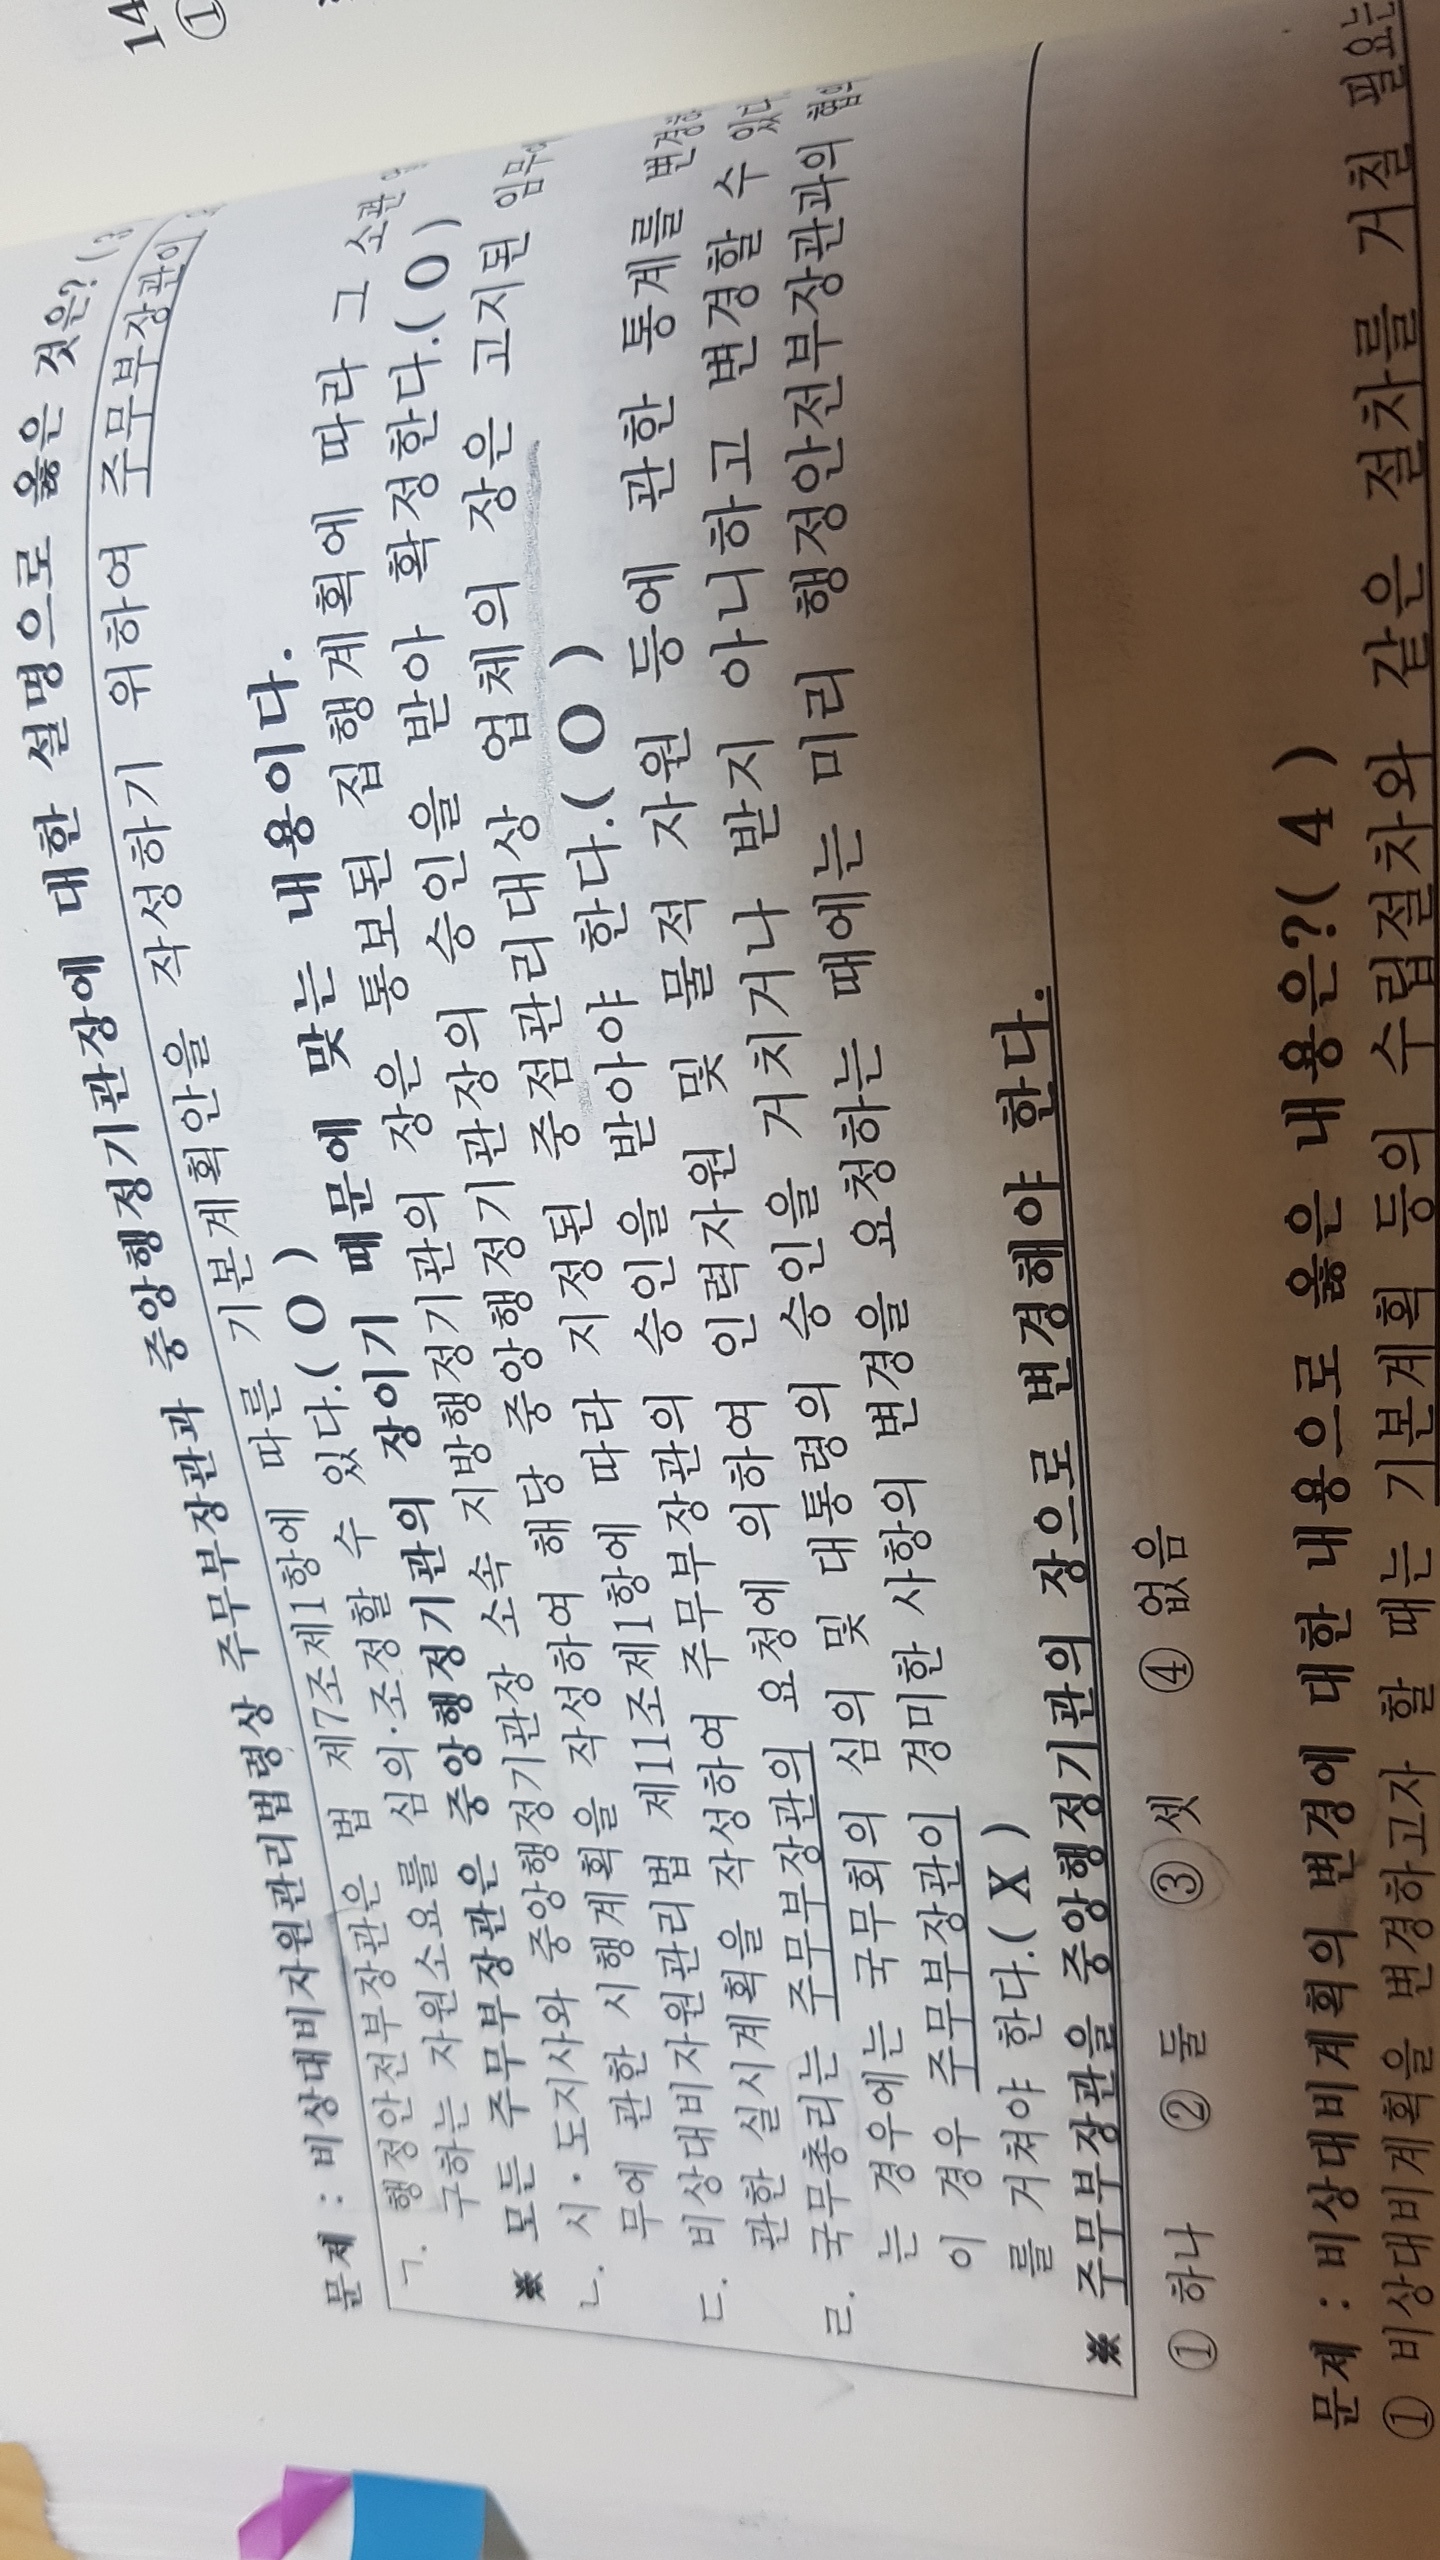 문제 : 비상대비자원관리법령상 주무부장관과 중앙행정기관장에 대한 설명으로 옳은 것은?
ㄱ. 행정안전부장관은 법 제7조제1항에 따른 기본계획안을 작성하기 위하여 주무부장관이
구하는 자원소요를 심의·조정할 수 있다.( O )
※ 모든 주무부장관은 중앙행정기관의 장이기 때문에 맞는 내용이다.
ㄴ. 시·도지사와 중앙행정기관장 소속 지방행정기관의 장은 통보된 집행계획에 따라 그 소관
무에 관한 시행계획을 작성하여 해당 중앙행정기관장의 승인을 받아 확정한다.( O )
ㄷ. 비상대비자원관리법 제11조제1항에 따라 지정된 중점관리대상 업체의 장은 고지된 임무에
관한 실시계획을 작성하여 주무부장관의 승인을 받아야 한다.( O )
ㄹ. 국무총리는 주무부장관의 요청에 의하여 인력자원 및 물적 자원 등에 관한 통계를 변경하
는 경우에는 국무회의 심의 및 대통령의 승인을 거치거나 받지 아니하고 변경할 수 있다.
이 경우 주무부장관이 경미한 사항의 변경을 요청하는 때에는 미리 행정안전부장관과의 협의
를 거쳐야 한다.( X )
※ 주무부장관을 중앙행정기관의 장으로 변경해야 한다.
① 하나 ② 둘 ③ 셋 ④ 없음
문제 : 비상대비계획의 변경에 대한 내용으로 옳은 내용은?( 4 )
① 비상대비계획을 변경하고자 할 때는 기본계획 등의 수립절차와 같은 절차를 거칠 필요는
14
①